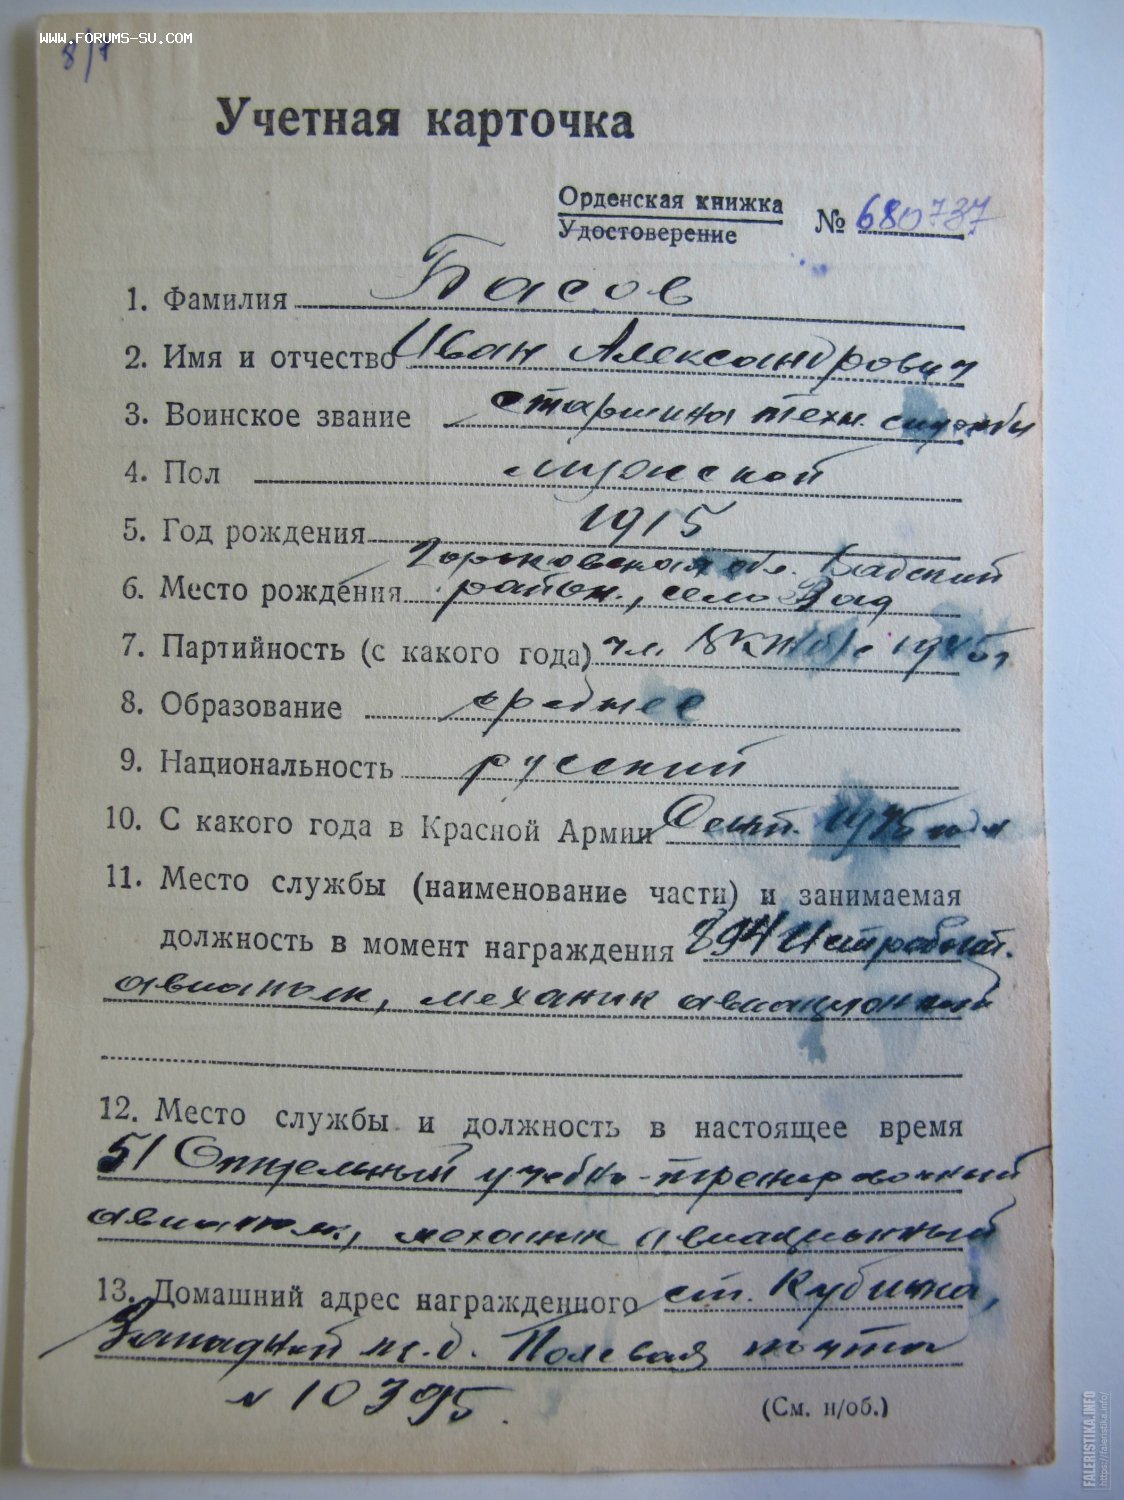 www.FORUMS-SU.COM
8/7
Учетная карточка
Орденская книжка
Удостоверение
№ 680737
1. Фамилия Басов
2. Имя и отчество Иван Александрович
3. Воинское звание старшина техн. службы
4. Пол мужской
5. Год рождения 1915
Горьковская обл. Вадский
6. Место рождения район, село Вад
7. Партийность (с какого года) чл. ВКП(б) с 1945г
8. Образование среднее
9. Национальность русский
10. С какого года в Красной Армии
11. Место службы (наименование части) и занимаемая
должность в момент награждения 894 Истребит.
авиаполк, механик авиационный
12. Место службы и должность в настоящее время
51 Отдельный учебно-тренировочный
авиаполк, механик авиационный
13. Домашний адрес награжденного ст. Кубинка,
Западной ж.д. Полевая почта
№ 10395.
(См. н/об.)
FALERISTIKA.INFO
https://faleristika.info/